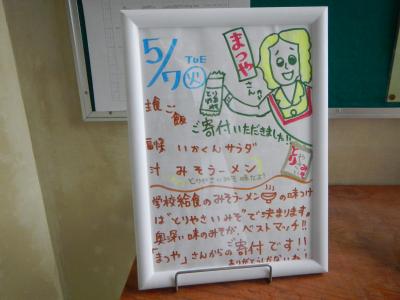 5/7 TUE
火
まつや
さん
とり
やさい
ご寄付いただきました!!
主食 ご飯
いかくんサラダ
汁 みそラーメン
とりやさいみそ味だよ!
学校給食のみそラーメンの味つけ
は"とりやさいみそ"で決まります。
奥深い味のみそが、ベストマッチ!!
「まつや」さんからのご寄付です!!
ありがとうございます!